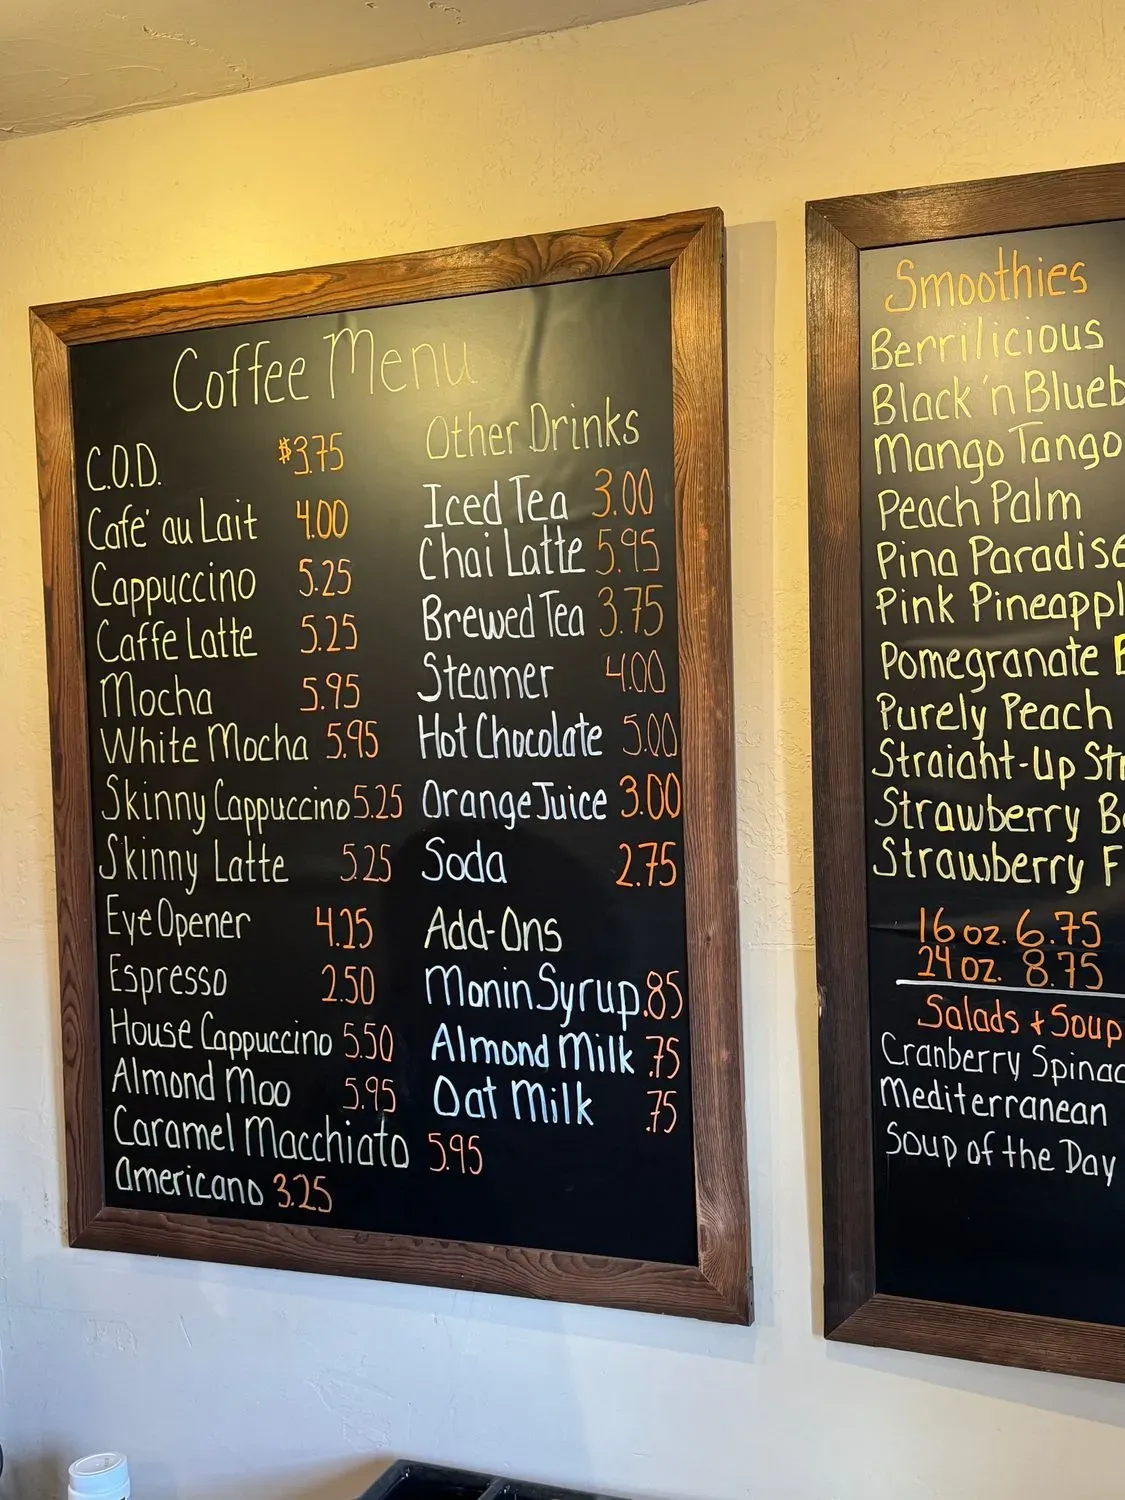 Coffee Menu
C.O.D. $3.75
Cafe' au Lait 4.00
Cappuccino 5.25
Caffe Latte 5.25
Mocha 5.95
White Mocha 5.95
Skinny Cappuccino 5.25
Skinny Latte 5.25
Eye Opener 4.25
Espresso 2.50
House Cappuccino 5.50
Almond Moo 5.95
Caramel Macchiato 5.95
Americano 3.25
Other Drinks
Iced Tea 3.00
Chai Latte 5.95
Brewed Tea 3.75
Steamer 4.00
Hot Chocolate 5.00
Orange Juice 3.00
Soda 2.75
Add-Ons
Monin Syrup .85
Almond Milk .75
Oat Milk .75
Smoothies
Berrilicious
Black 'n Blueb
Mango Tango
Peach Palm
Pina Paradise
Pink Pineappl
Pomegranate B
Purely Peach
Straight-Up Str
Strawberry B
Strawberry F
16 oz. 6.75
24 oz. 8.75
Salads + Soup
Cranberry Spinac
Mediterranean
Soup of the Day